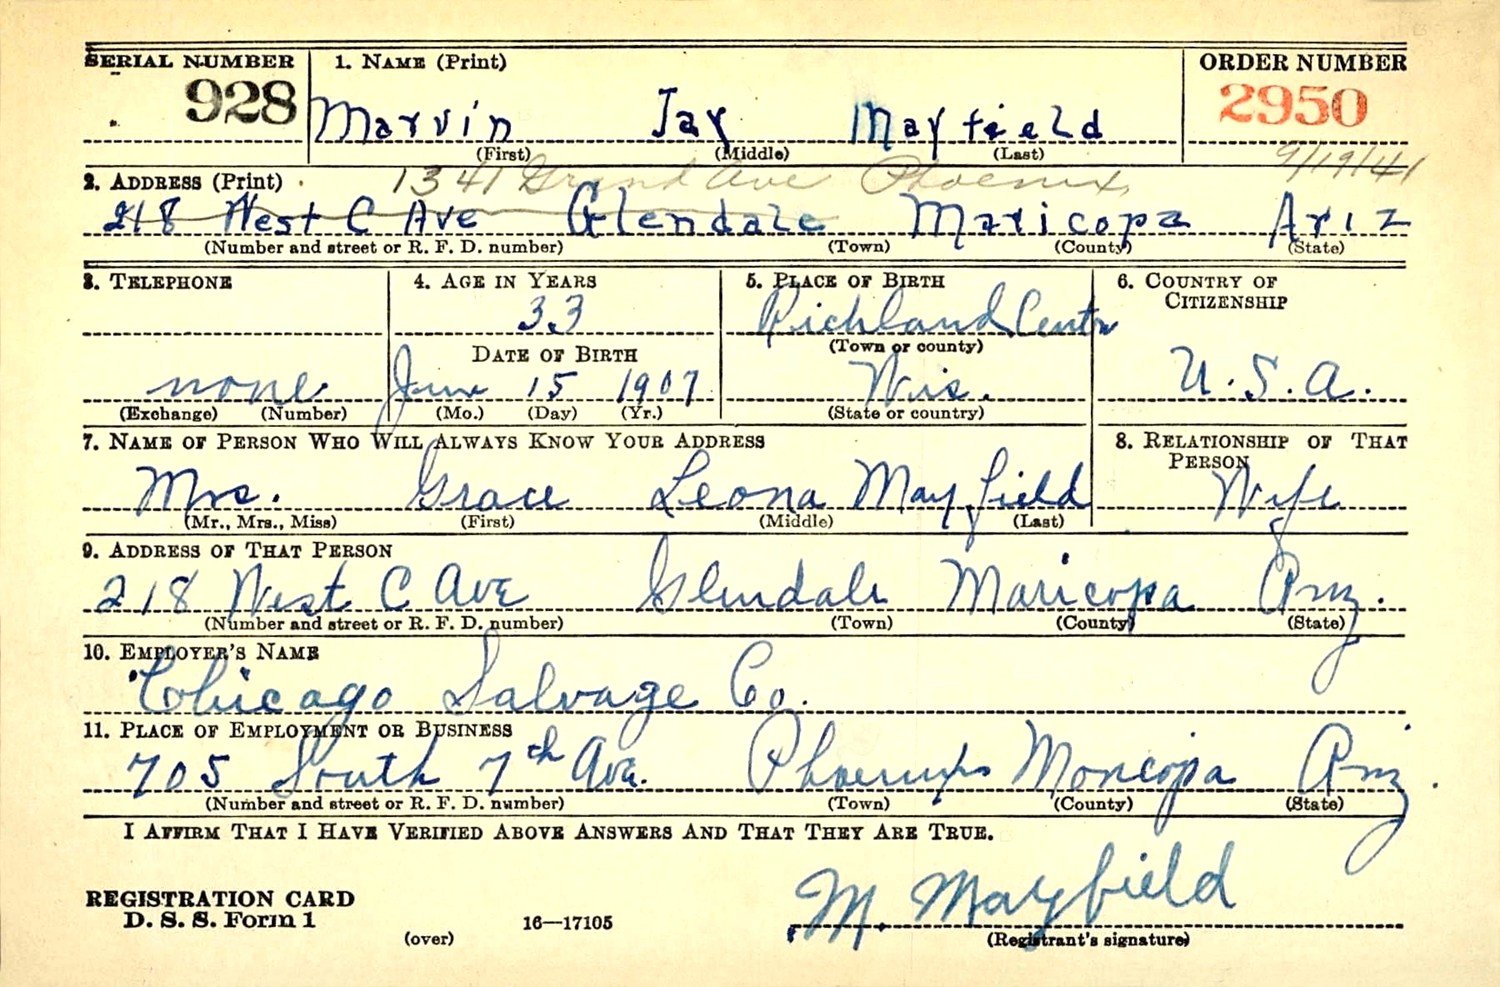 SERIAL NUMBER 1. NAME (Print) ORDER NUMBER
928 Marvin Jay Mayfield 2950
(First) (Middle) (Last)
9/19/41
2. ADDRESS (Print) 1341 Grand Ave Phoenix
218 West C Ave Glendale Maricopa Ariz
(Number and street or R. F. D. number) (Town) (County) (State)
3. TELEPHONE 4. AGE IN YEARS 5. PLACE OF BIRTH 6. COUNTRY OF CITIZENSHIP
33 Richland Center
(Town or county)
DATE OF BIRTH
none June 15 1907 Wis. U.S.A.
(Exchange) (Number) (Mo.) (Day) (Yr.) (State or country)
7. NAME OF PERSON WHO WILL ALWAYS KNOW YOUR ADDRESS 8. RELATIONSHIP OF THAT PERSON
Mrs. Grace Leona Mayfield Wife
(Mr., Mrs., Miss) (First) (Middle) (Last)
9. ADDRESS OF THAT PERSON
218 West C Ave Glendale Maricopa Ariz.
(Number and street or R. F. D. number) (Town) (County) (State)
10. EMPLOYER'S NAME
Chicago Salvage Co.
11. PLACE OF EMPLOYMENT OR BUSINESS
705 South 7th Ave. Phoenix Moricopa Ariz.
(Number and street or R. F. D. number) (Town) (County) (State)
I AFFIRM THAT I HAVE VERIFIED ABOVE ANSWERS AND THAT THEY ARE TRUE.
M. Mayfield
REGISTRATION CARD
D. S. S. Form 1 16—17105
(over) (Registrant's signature)